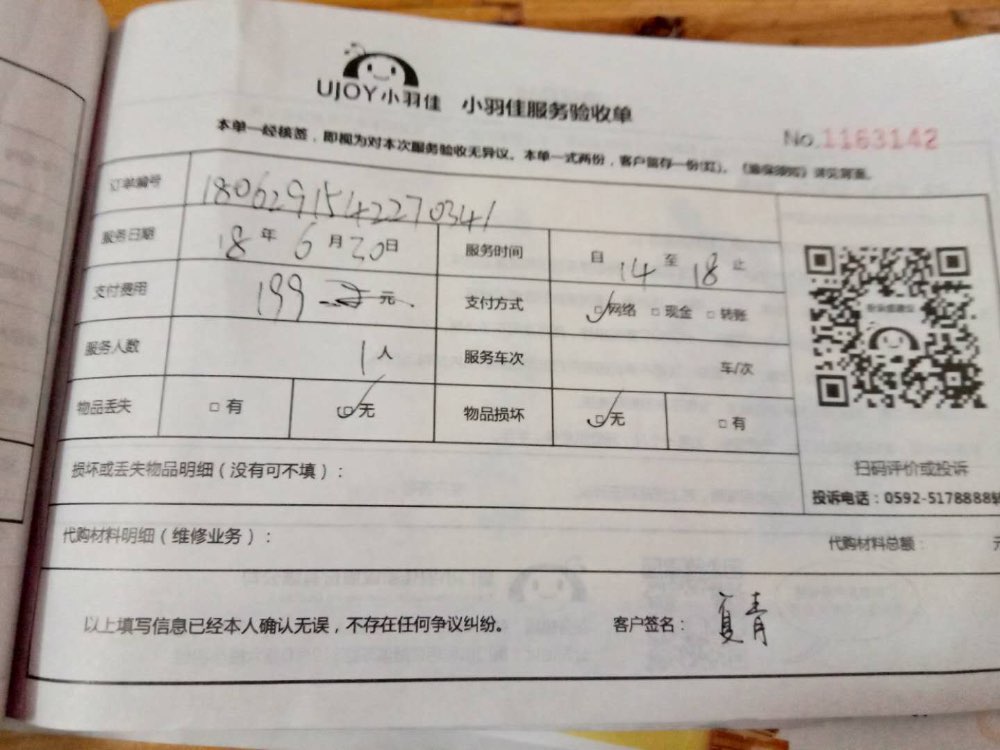 UJOY小羽佳 小羽佳服务验收单
No.1163142
本单一经核签，即视为对本次服务验收无异议。本单一式两份，客户留存一份(红)。
订单编号 1806291542270341
服务日期 18年6月30日 服务时间 自14至18止
支付费用 199元 支付方式 ☑网络 □现金 □转账
服务人数 1人 服务车次 车/次
物品丢失 □有 ☑无 物品损坏 ☑无 □有
损坏或丢失物品明细（没有可不填）：
扫码评价或投诉
投诉电话：0592-5178888转
代购材料明细（维修业务）： 代购材料总额： 元
以上填写信息已经本人确认无误，不存在任何争议纠纷。 客户签名： 夏青